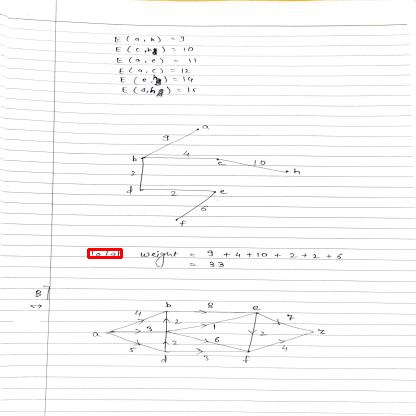 E (a, b) = 9
E (c, h) = 10
E (a, e) = 11
E (a, c) = 12
E (e, h) = 14
E (d, h) = 15
a
9
b
4
c
10
h
2
d
2
e
6
f
Total weight = 9 + 4 + 10 + 2 + 2 + 6
= 33
B]
b
8
e
4
2
7
a
3
1
z
5
2
6
2
4
d
3
f